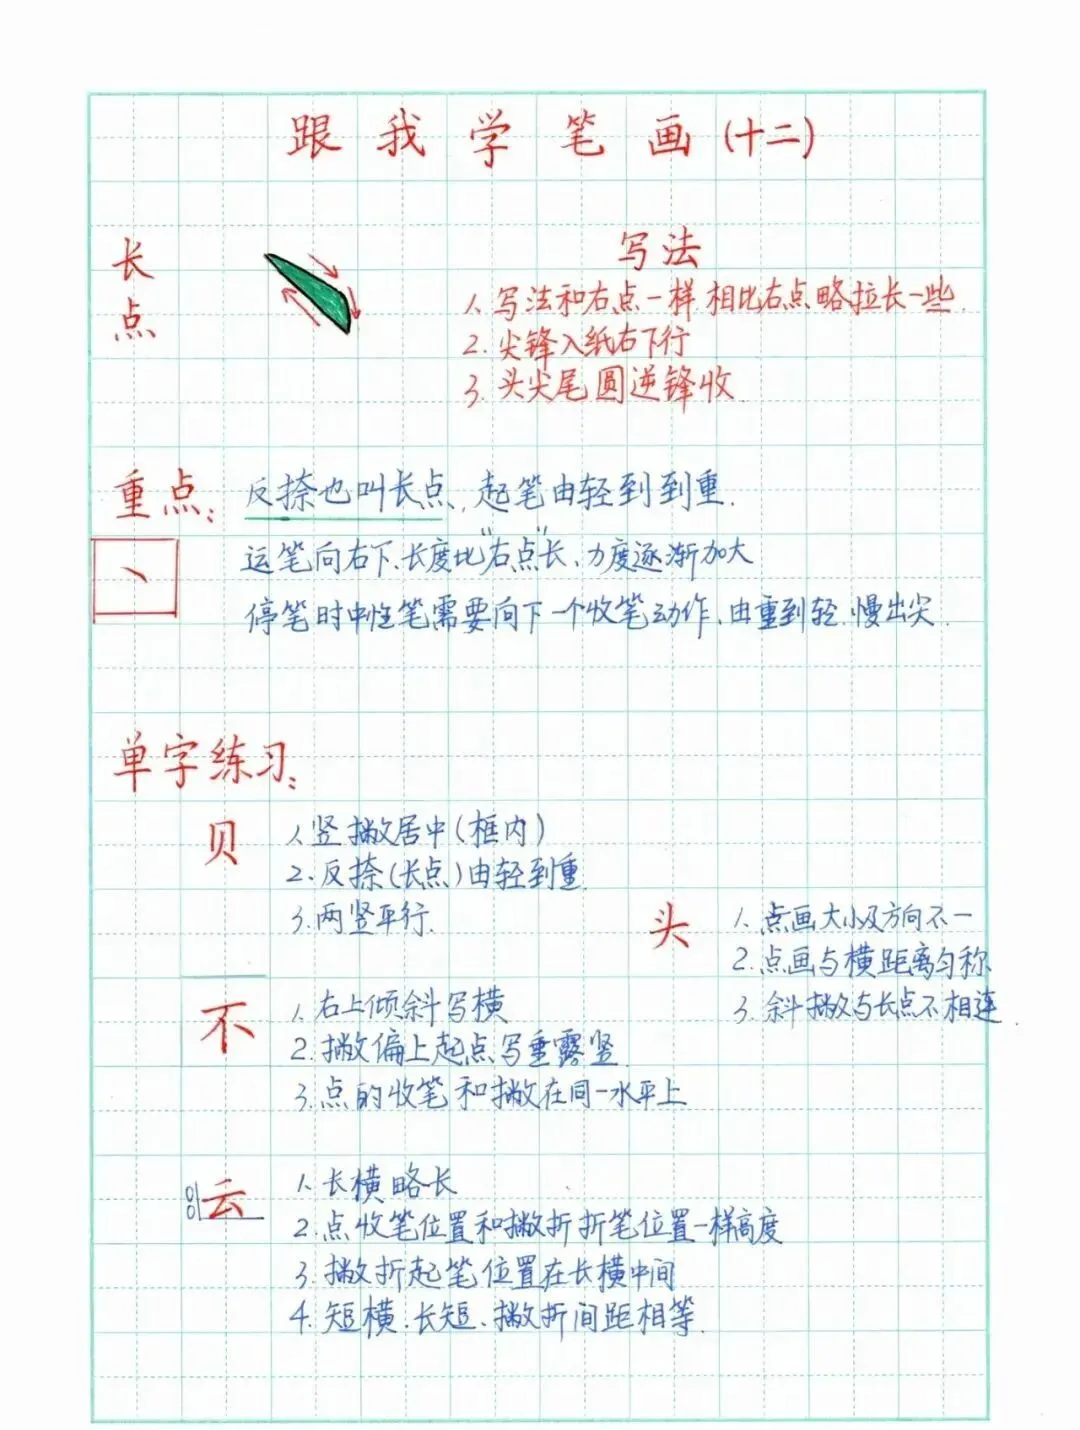 跟我学笔画(十二)
长点
写法
1.写法和右点一样相比右点略拉长一些.
2.尖锋入纸右下行
3.头尖尾圆逆锋收
重点:反捺也叫长点,起笔由轻到到重.
运笔向右下、长度比"右点"长、力度逐渐加大
停笔时中性笔需要向下一个收笔动作、由重到轻.慢出尖.
单字练习:
贝
1.竖撇居中(框内)
2.反捺(长点)由轻到重.
3.两竖平行.
头
1.点画大小及方向不一
2.点画与横距离匀称
3.斜撇与长点不相连.
不
1.右上倾斜写横
2.撇偏上起点写垂露竖.
3.点的收笔和撇在同一水平上
云
1.长横略长
2.点收笔位置和撇折折笔位置一样高度
3.撇折起笔位置在长横中间
4.短横.长短、撇折间距相等.